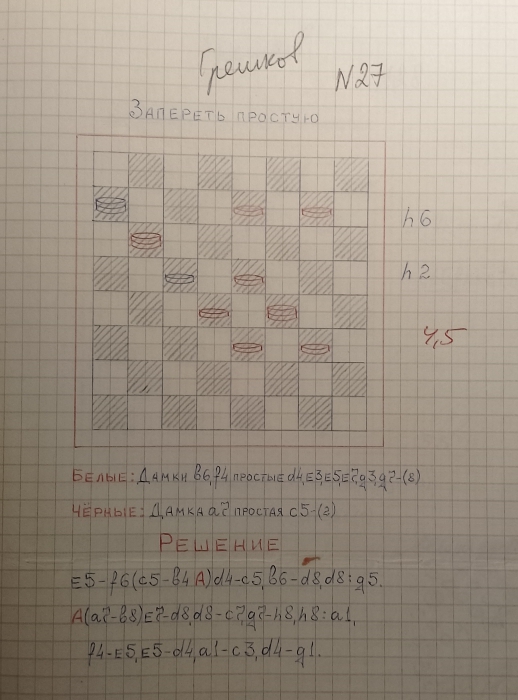 Грешков
N27
ЗАПЕРЕТЬ ПРОСТУЮ
h6
h2
4,5
БЕЛЫЕ: ДАМКИ b6, f4 ПРОСТЫЕ d4, E3, E5, E7, g3, g7-(8)
ЧЁРНЫЕ: ДАМКА a7 ПРОСТАЯ c5-(2)
РЕШЕНИЕ
E5-f6(c5-b4 A) d4-c5, b6-d8, d8:g5.
A(a7-b8) E7-d8, d8-c7, g7-h8, h8:a1,
f4-E5, E5-d4, a1-c3, d4-g1.